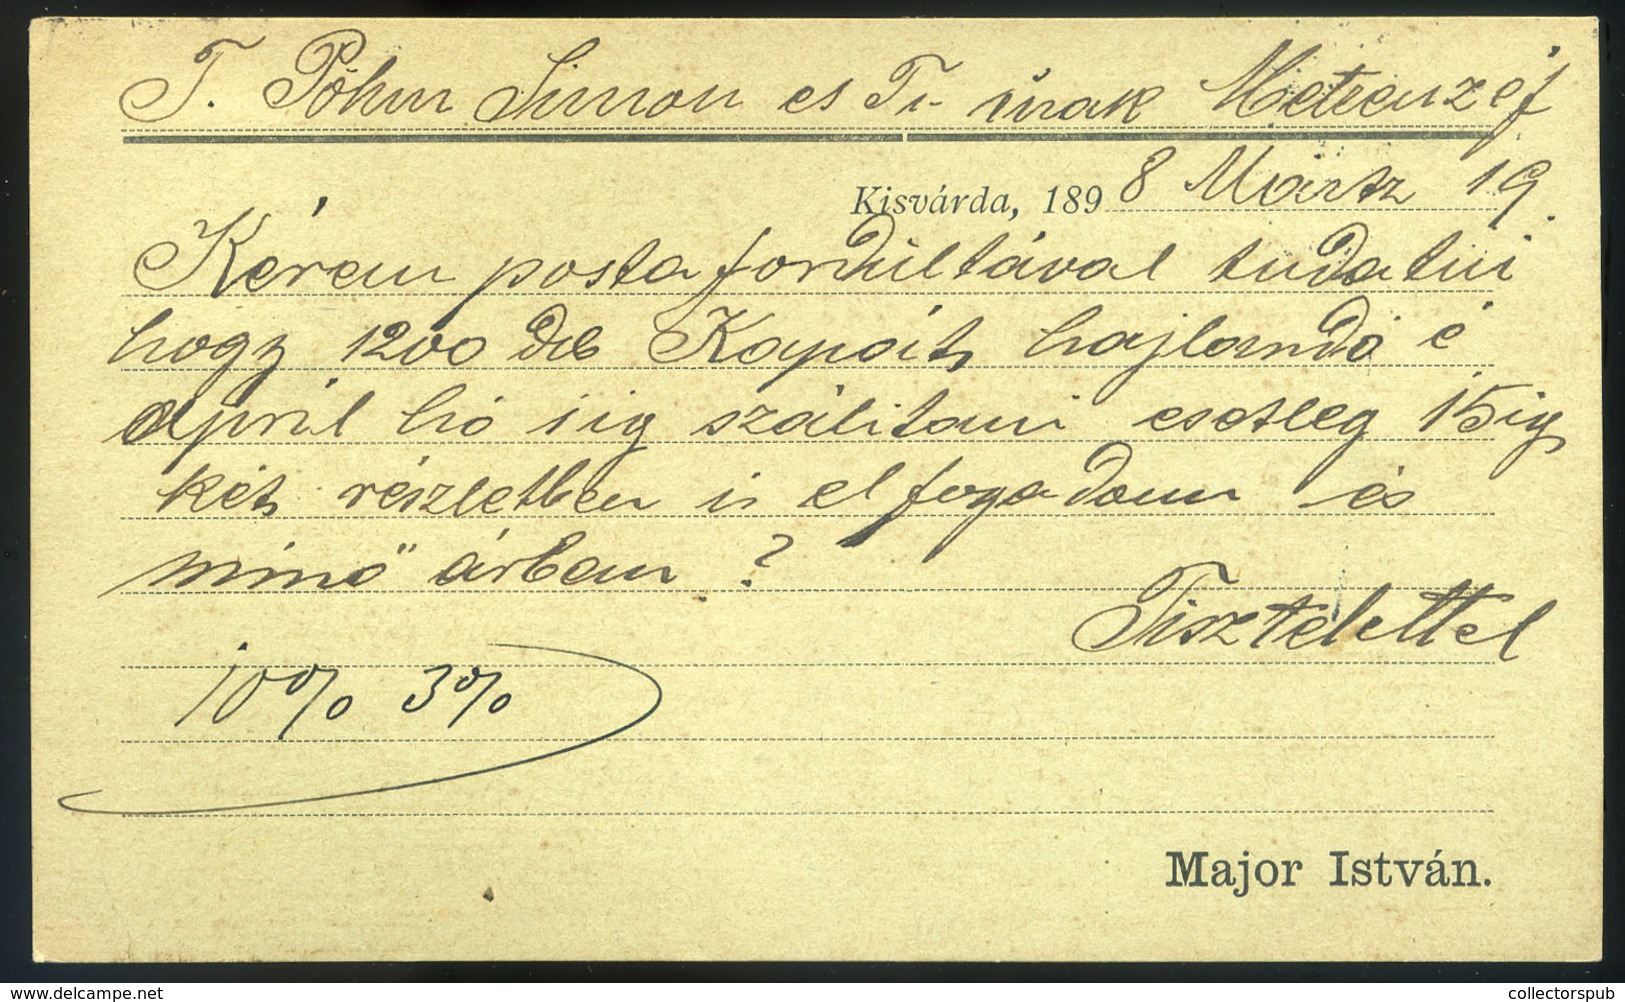 T. Pöhm Simon és Tr. úrak Metzenzéf
Kisvárda, 1898 Mártz 19.
Kérem posta fordúltával tudatni
hogy 1200 db Kapát, hajlandó é
április hó 1 ig szálitani esetleg 15 ig,
két részletben is elfogadom és
minő árban ?
Tisztelettel
10% 3%
Major István.
delcampe.net
collectorspub